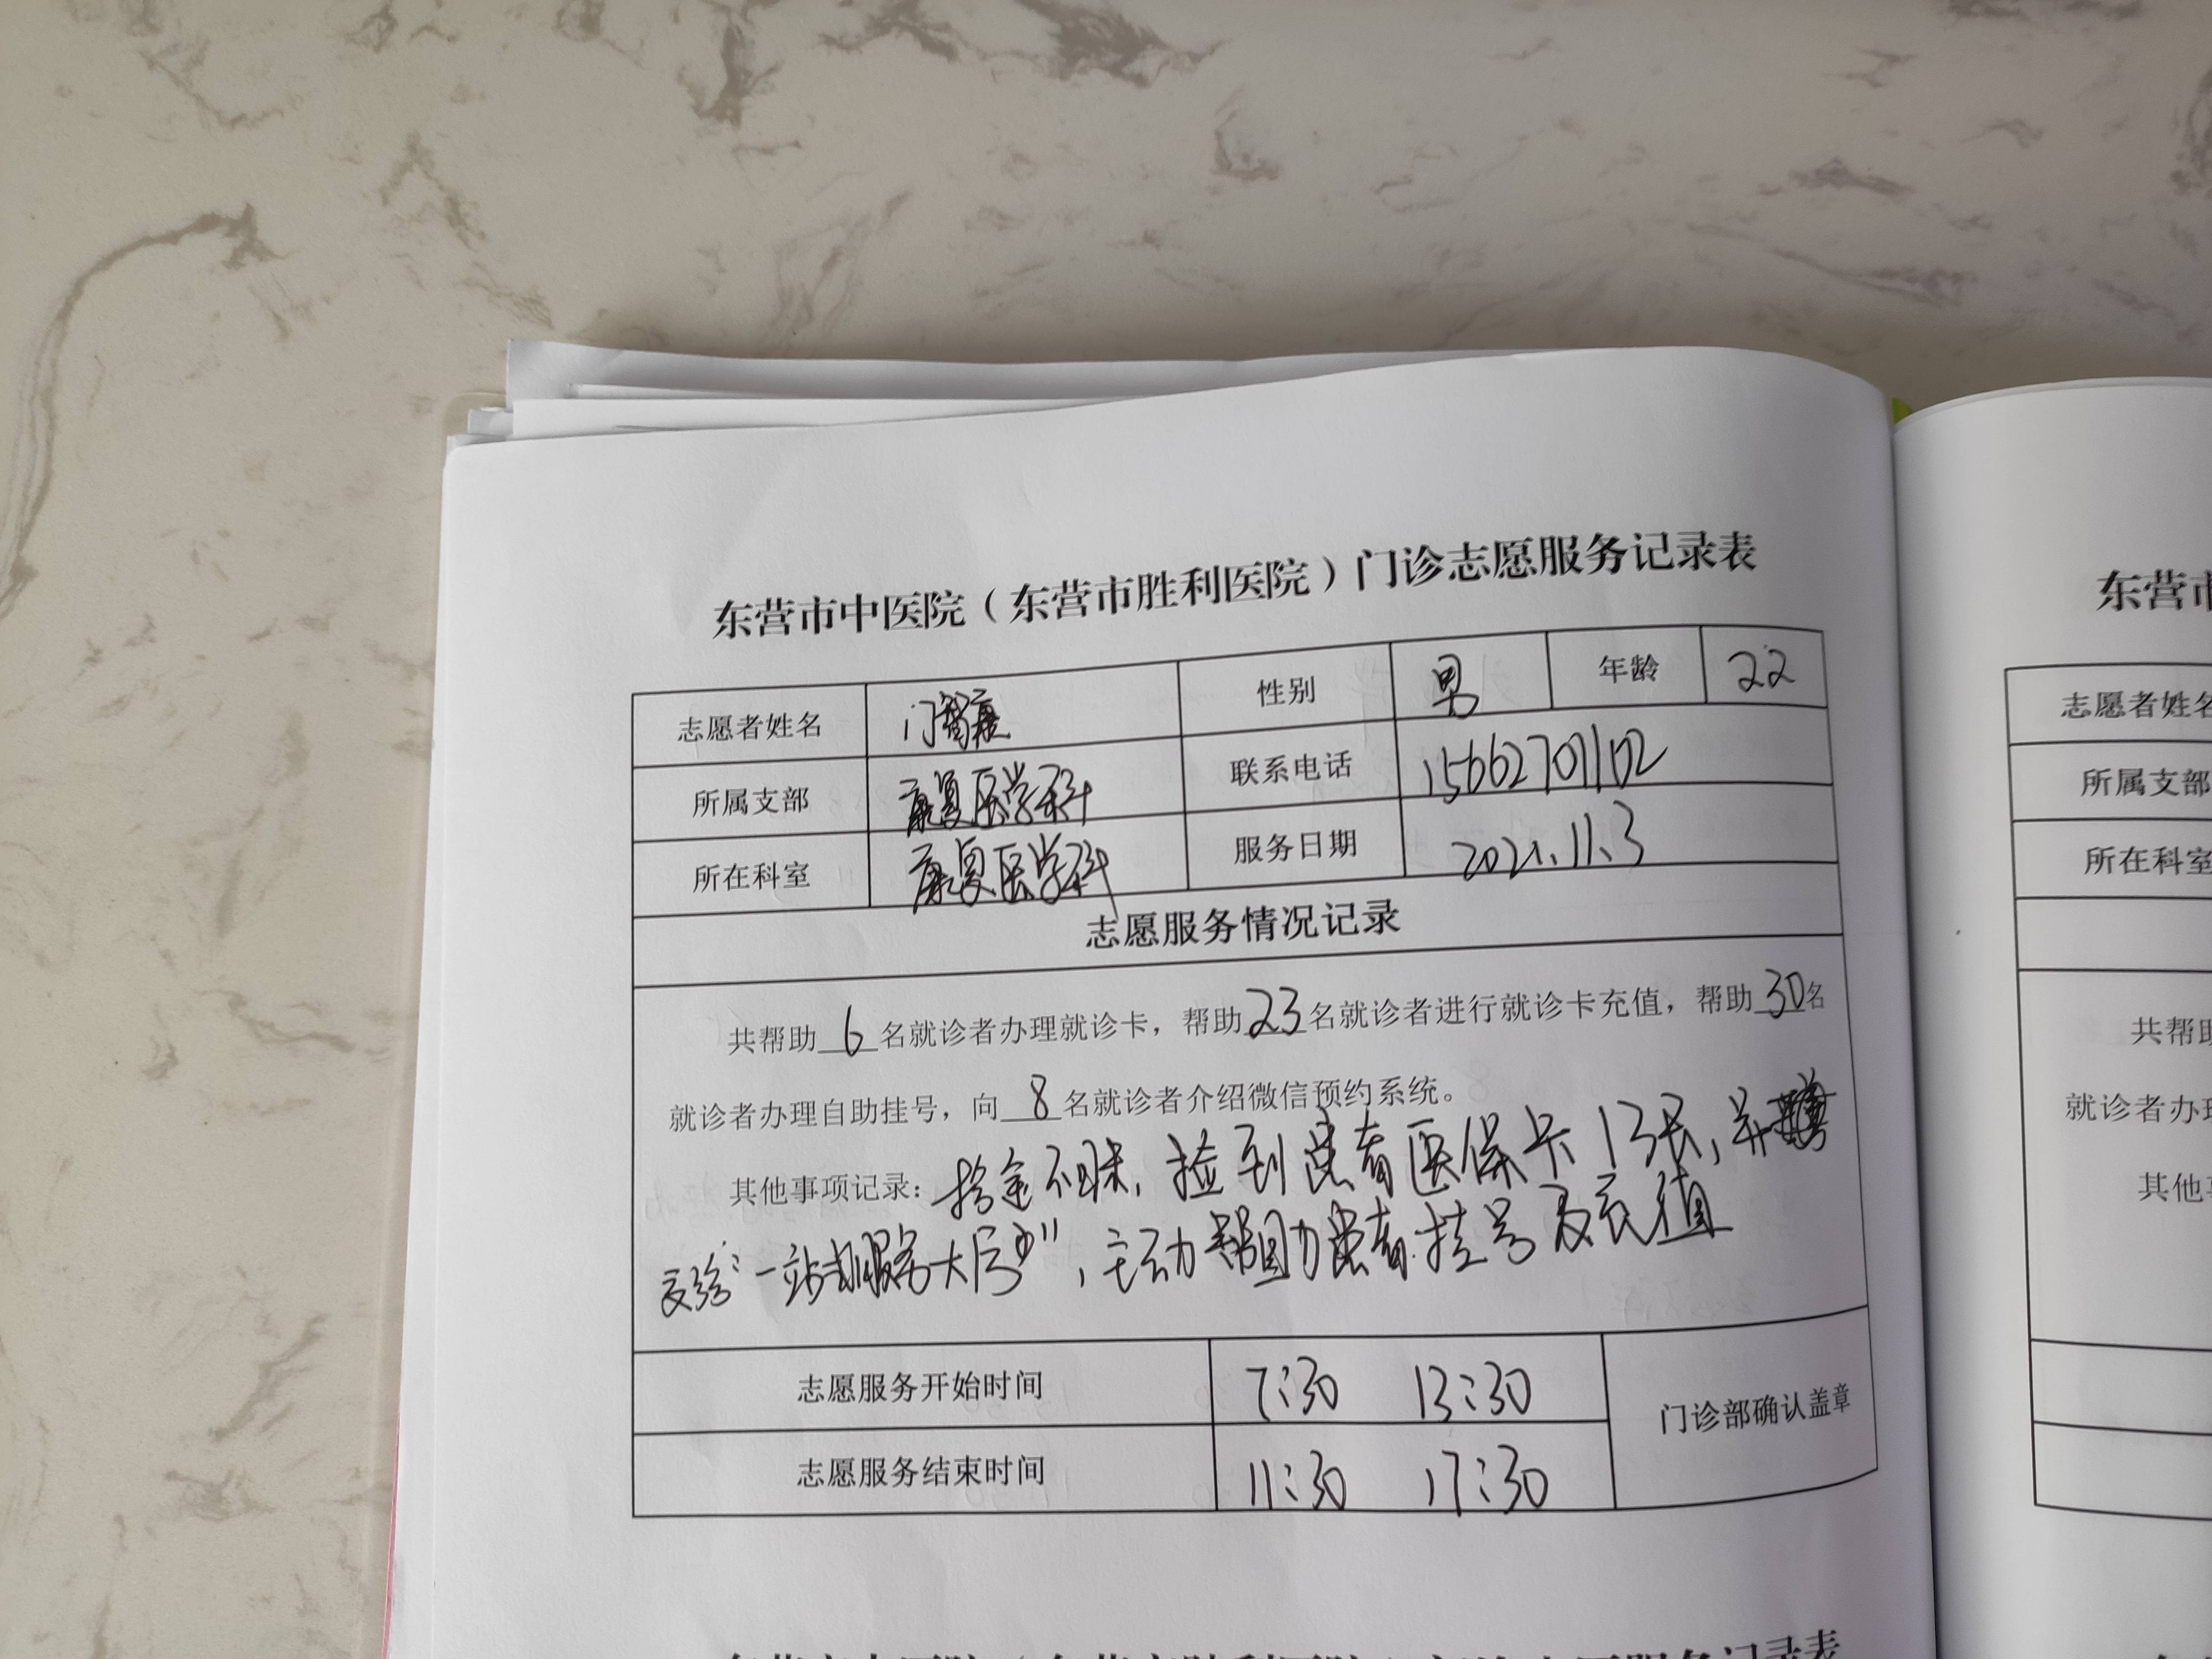 东营市中医院（东营市胜利医院）门诊志愿服务记录表
志愿者姓名 门 性别 男 年龄 22
所属支部 康复医学科 联系电话 15662701102
所在科室 康复医学科 服务日期 2021.11.3
志愿服务情况记录
共帮助 6 名就诊者办理就诊卡，帮助 23 名就诊者进行就诊卡充值，帮助 30 名
就诊者办理自助挂号，向 8 名就诊者介绍微信预约系统。
其他事项记录：拾金不昧，捡到患者医保卡13张，并
交给“一站式服务大厅”，主动帮助患者挂号及充值
志愿服务开始时间 7:30 13:30
门诊部确认盖章
志愿服务结束时间 11:30 17:30
东营市
志愿者姓名
所属支部
所在科室
共帮助
就诊者办理
其他事